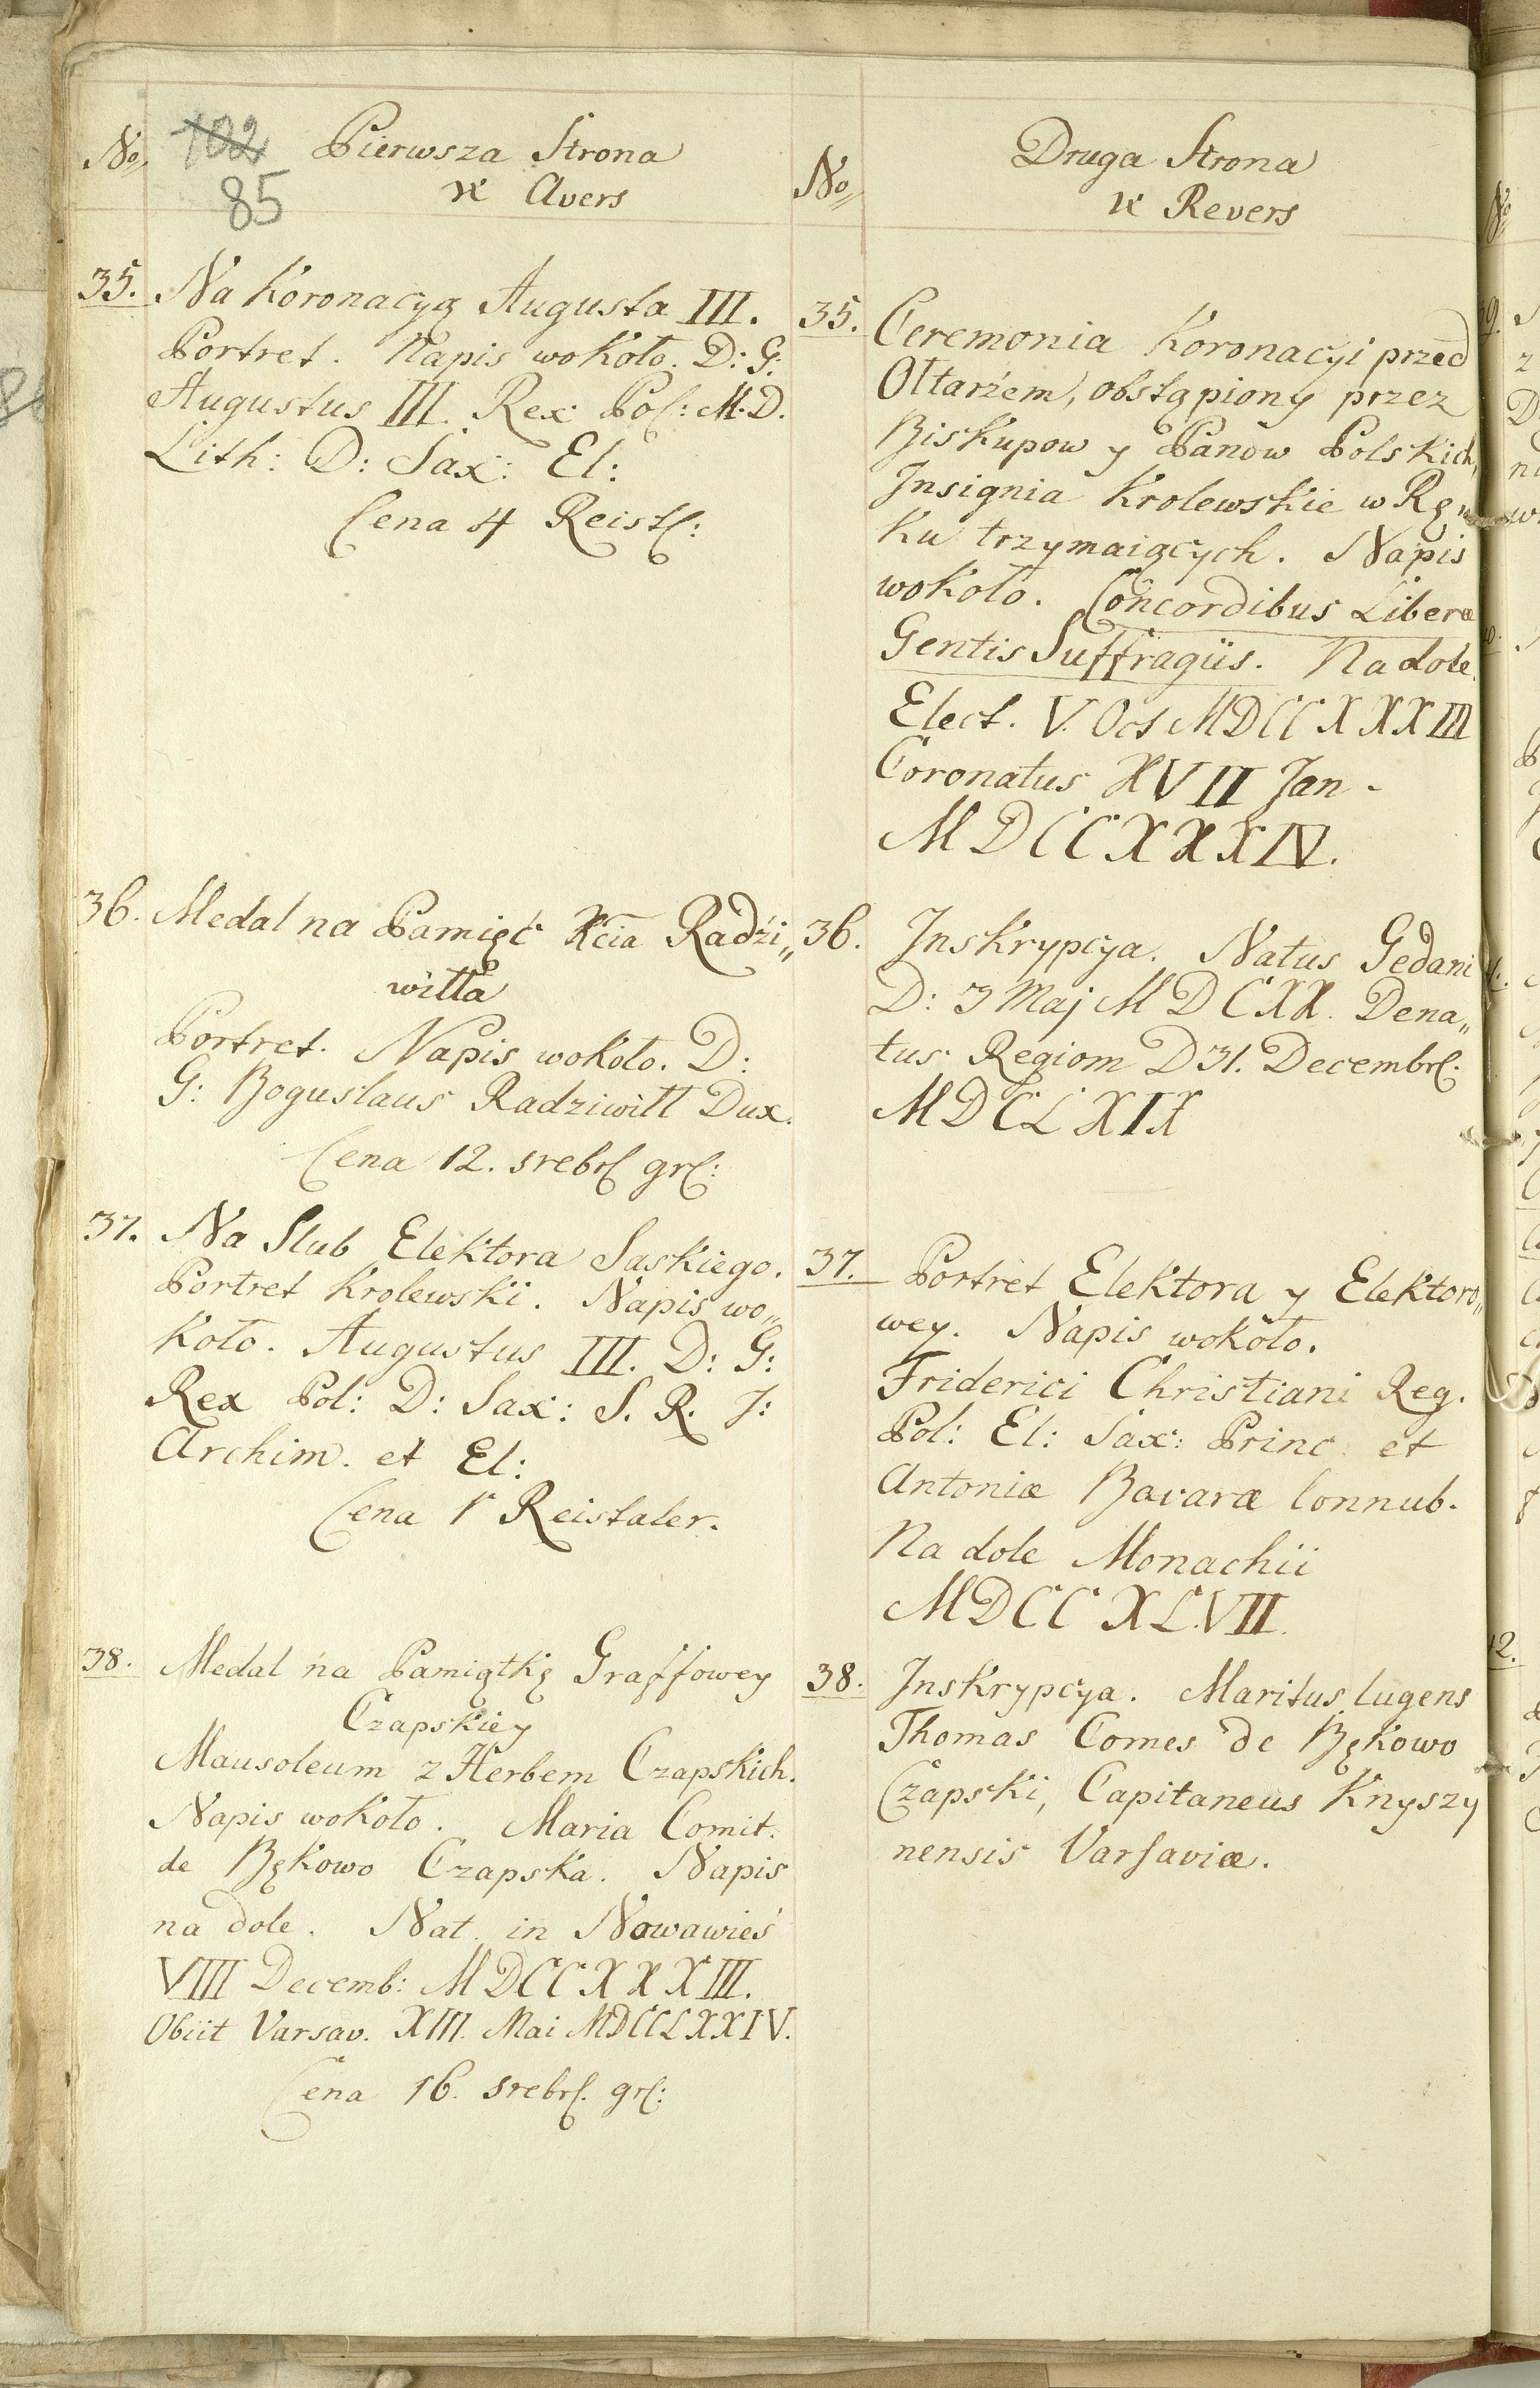 No 102 Pierwsza Strona
85 x Avers
35. Na Koronacyą Augusta III.
Portret. Napis wokoło. D: G:
Augustus III. Rex Pol: M. D.
Lith: D: Sax: El:
Cena 4 Reistl:
36. Medal na Pamięć Xcia Radzi„
wiłła
Portret. Napis wokoło. D:
G: Boguslaus Radziwiłł Dux.
Cena 12. srebrl grl:
37. Na Slub Elektora Saskiego.
Portret Krolewski. Napis wo„
koło. Augustus III. D: G:
Rex Pol: D: Sax: S. R. J:
Archim. et El:
Cena 1 Reistaler.
38. Medal na Pamiątkę Graffowey
Czapskiey
Mausoleum z Herbem Czapskich.
Napis wokoło. Maria Comit.
de Bękowo Czapska. Napis
na dole. Nat. in Nowawieś
VIII Decemb: MDCCXXXIII.
Obiit Varsav. XIII. Mai MDCCLXXIV.
Cena 16. srebrl. grl:
No Druga Strona
x Revers
35. Ceremonia Koronacyi przed
Ołtarzem, obstąpiony przez
Biskupow y Panow Polskich,
Jnsignia Krolewskie w Rę„
ku trzymaiących. Napis
wokoło. Concordibus Liberæ
Gentis Suffragiis. Na dole.
Elect. V. Oct MDCCXXXIII
Coronatus XVII Jan.
MDCCXXXIV.
36. Jnskrypcya. Natus Gedani
D: 3 Maj MDCXX. Dena„
tus Regiom D 31. Decembrl.
MDCLXIX
37. Portret Elektora y Elektoro„
wey. Napis wokoło.
Friderici Christiani Reg.
Pol: El: Sax: Princ. et
Antoniæ Bavaræ Connub.
Na dole Monachii
MDCCXLVII.
38. Jnskrypcya. Maritus lugens
Thomas Comes de Bękowo
Czapski, Capitaneus Knyszy
nensis Varsaviæ.